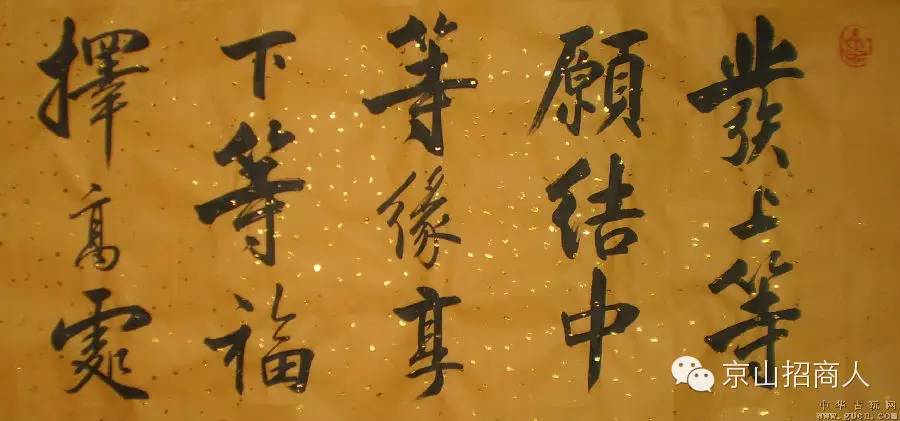 發上等
願結中
等緣享
下等福
擇高處
京山招商人
中华古玩网
www.gucn.com